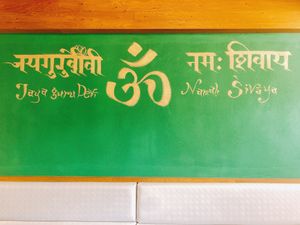 जयगुरुदेवी ॐ नमः शिवाय
Jaya Guru Devi Namah Śivāya